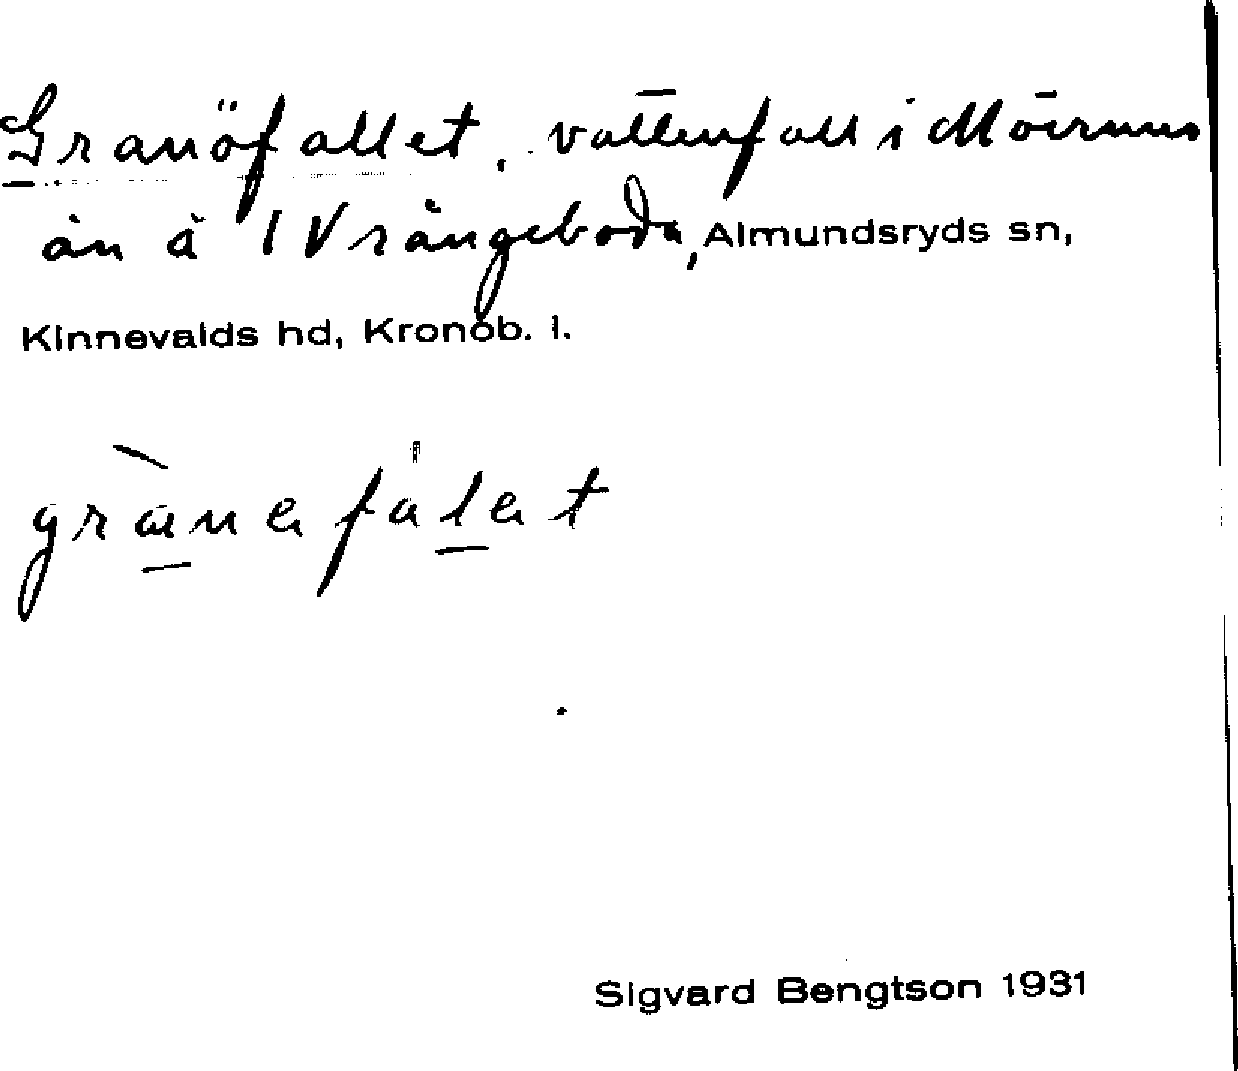 Granöfallet, vattenfall i Mörrums
ån å 1 Vrångeboda, Almundsryds sn,
Kinnevalds hd, Kronob. l.
gränefalet
Sigvard Bengtson 1931